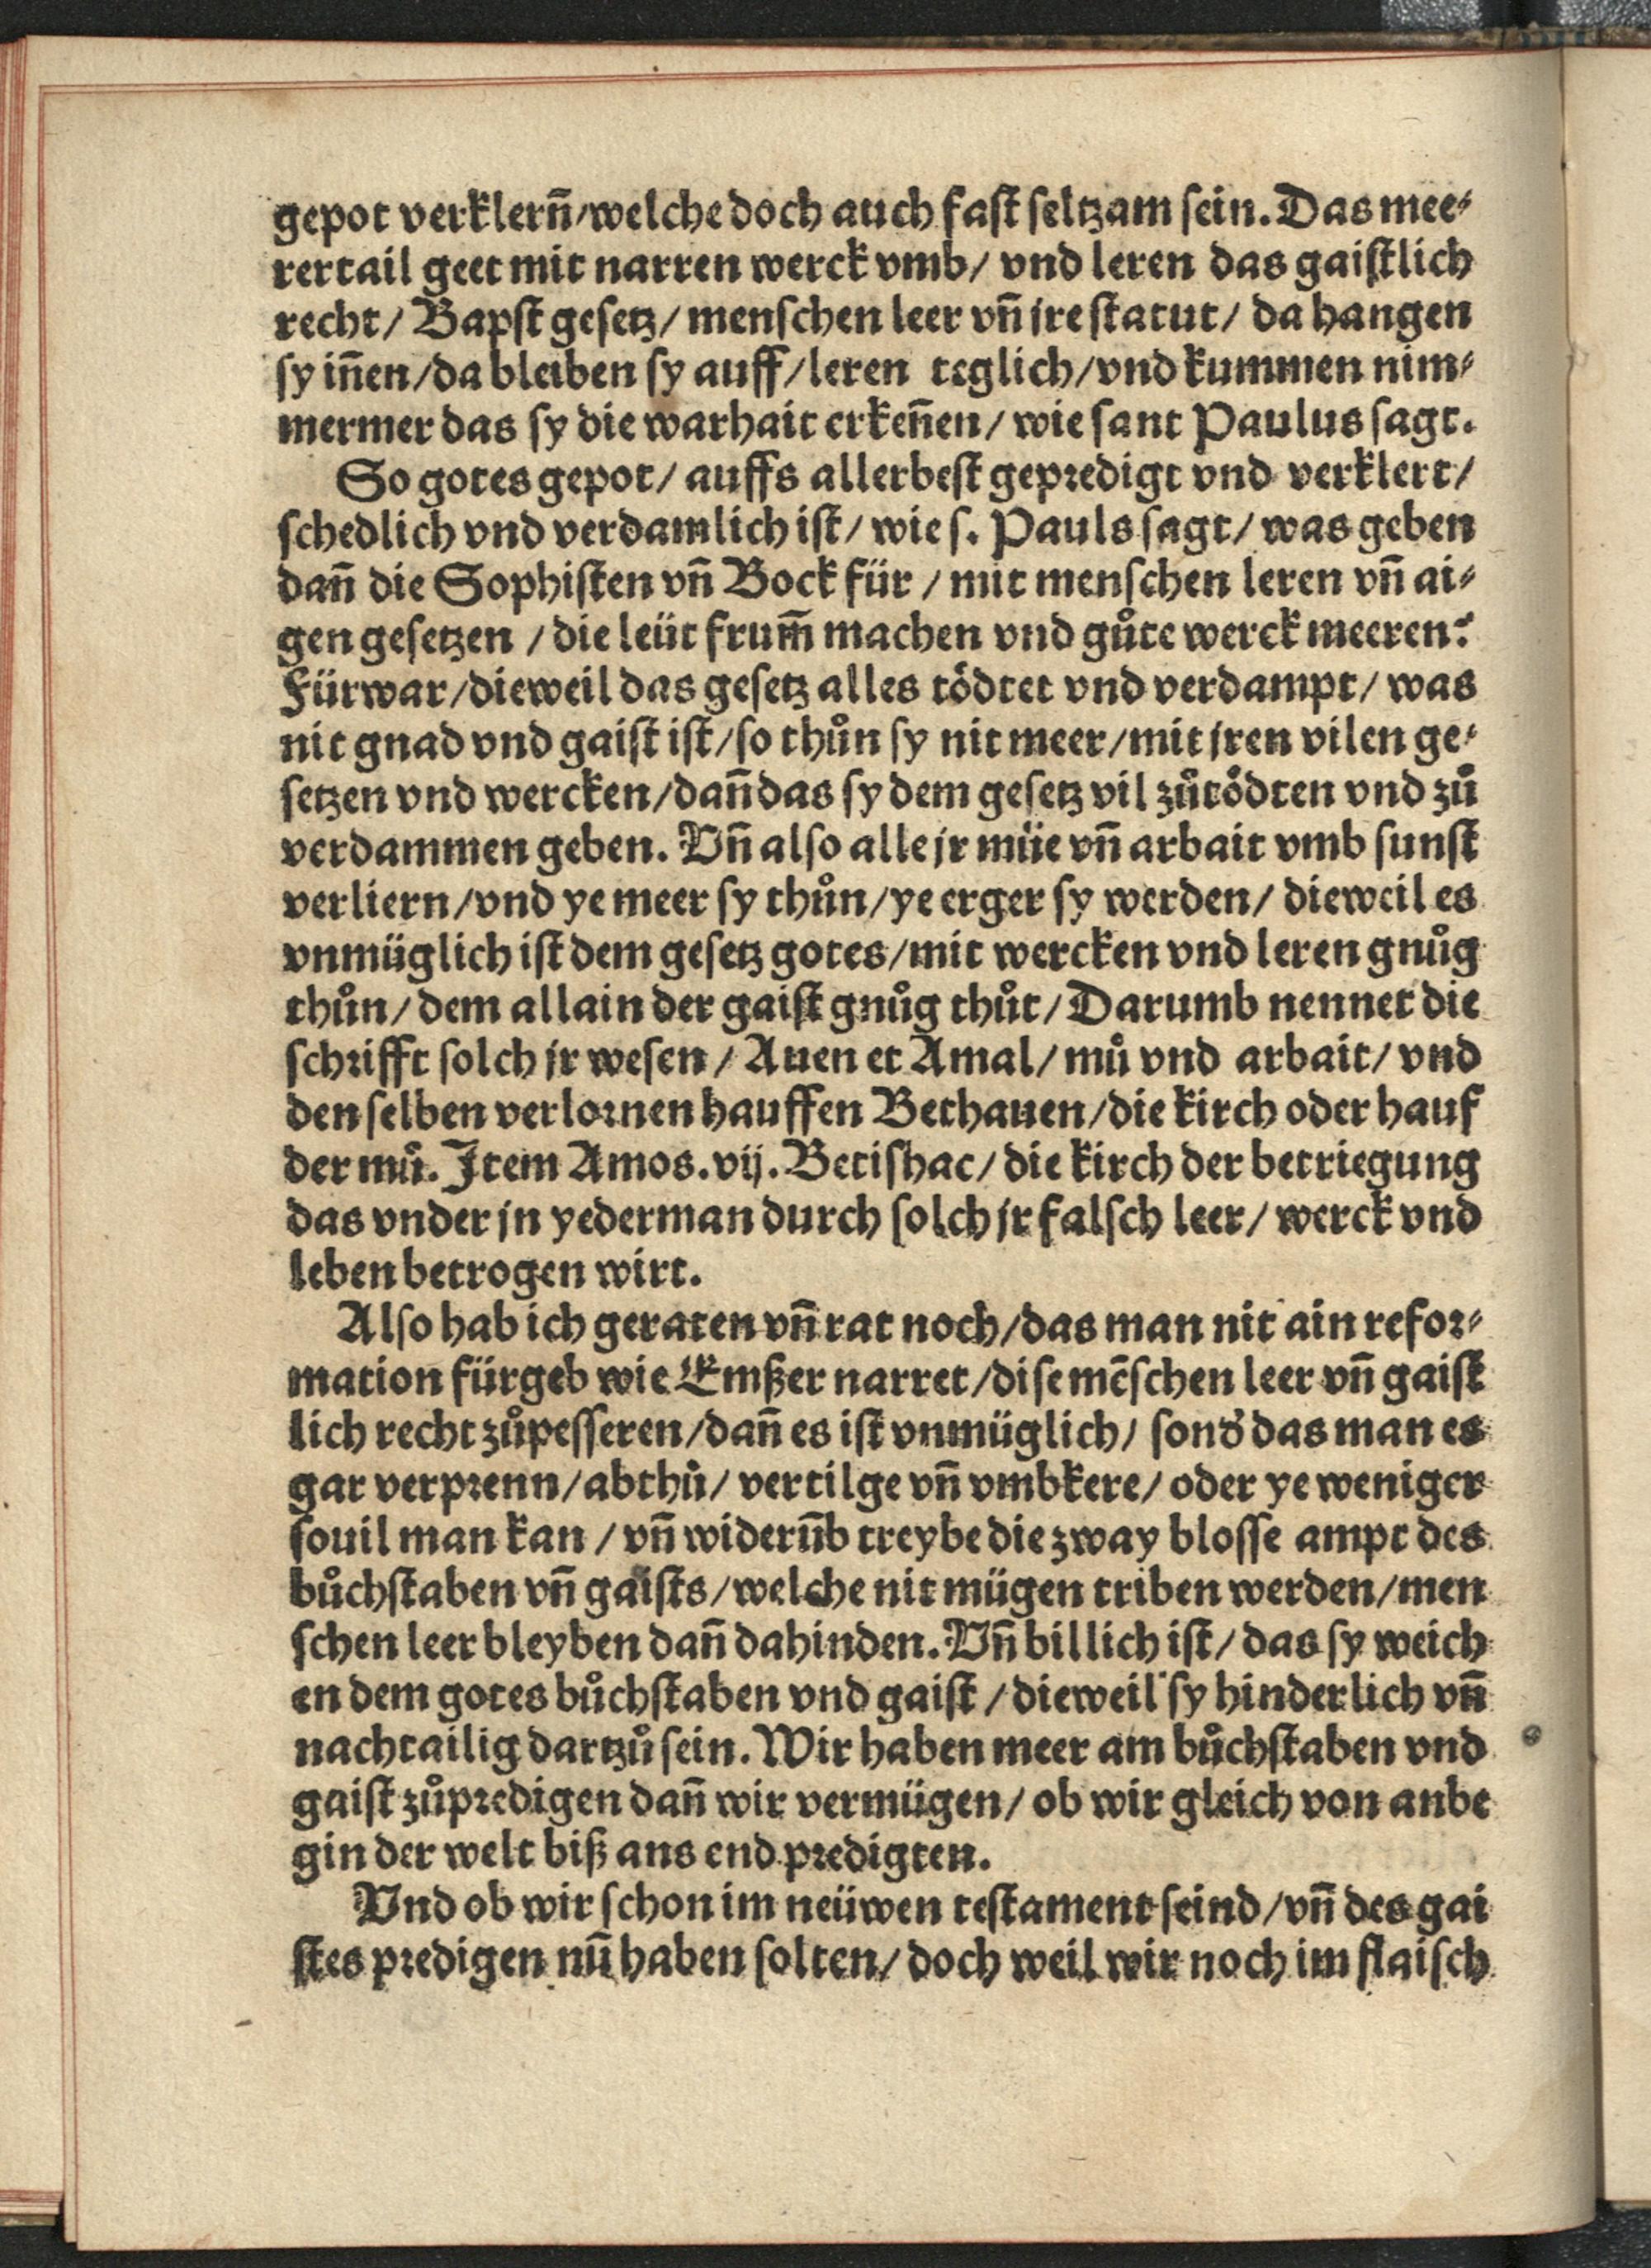 gepot verklern̄/welche doch auch fast seltzam sein. Das mee⸗
rertail geet mit narren werck vmb/ vnd leren das gaistlich
recht/ Bapst gesetz/ menschen leer vn̄ jre statut/ da hangen
sy in̄en/da bleiben sy auff/leren teglich/vnd kummen nim⸗
mermer das sy die warhait erken̄en/ wie sant Paulus sagt.
So gotes gepot/ auffs allerbest gepredigt vnd verklert/
schedlich vnd verdamlich ist/ wie s. Pauls sagt/ was geben
dan̄ die Sophisten vn̄ Bock für / mit menschen leren vn̄ ai⸗
gen gesetzen / die leüt frum̄ machen vnd gůte werck meeren?
Fürwar/dieweil das gesetz alles tödtet vnd verdampt/ was
nit gnad vnd gaist ist/so thůn sy nit meer/mit jren vilen ge⸗
setzen vnd wercken/dan̄ das sy dem gesetz vil zůtödten vnd zů
verdammen geben. Vn̄ also alle jr müe vn̄ arbait vmb sunst
verliern/vnd ye meer sy thůn/ye erger sy werden/ dieweil es
vnmüglich ist dem gesetz gotes/mit wercken vnd leren gnůg
thůn/ dem allain der gaist gnůg thůt/ Darumb nennet die
schrifft solch jr wesen / Auen et Amal/ mů vnd arbait/ vnd
den selben verlornen hauffen Bethauen/die kirch oder hauf
der mů. Item Amos. vij. Betishac/ die kirch der betriegung
das vnder jn yederman durch solch jr falsch leer/ werck vnd
leben betrogen wirt.
Also hab ich geraten vn̄ rat noch/das man nit ain refor⸗
mation fürgeb wie Emßer narret/dise mēschen leer vn̄ gaist
lich recht zůpesseren/dan̄ es ist vnmüglich/ sond̓ das man es
gar verprenn/abthů/ vertilge vn̄ vmbkere/ oder ye weniger
souil man kan / vn̄ widerūb treybe die zway blosse ampt des
bůchstaben vn̄ gaists/welche nit mügen triben werden/men
schen leer bleyben dan̄ dahinden. Vn̄ billich ist/ das sy weich
en dem gotes bůchstaben vnd gaist / dieweil sy hinderlich vn̄
nachtailig dartzů sein. Wir haben meer am bůchstaben vnd
gaist zůpredigen dan̄ wir vermügen/ ob wir gleich von anbe
gin der welt biß ans end predigten.
Vnd ob wir schon im neüwen testament seind/vn̄ des gai
stes predigen nū haben solten/ doch weil wir noch im flaisch